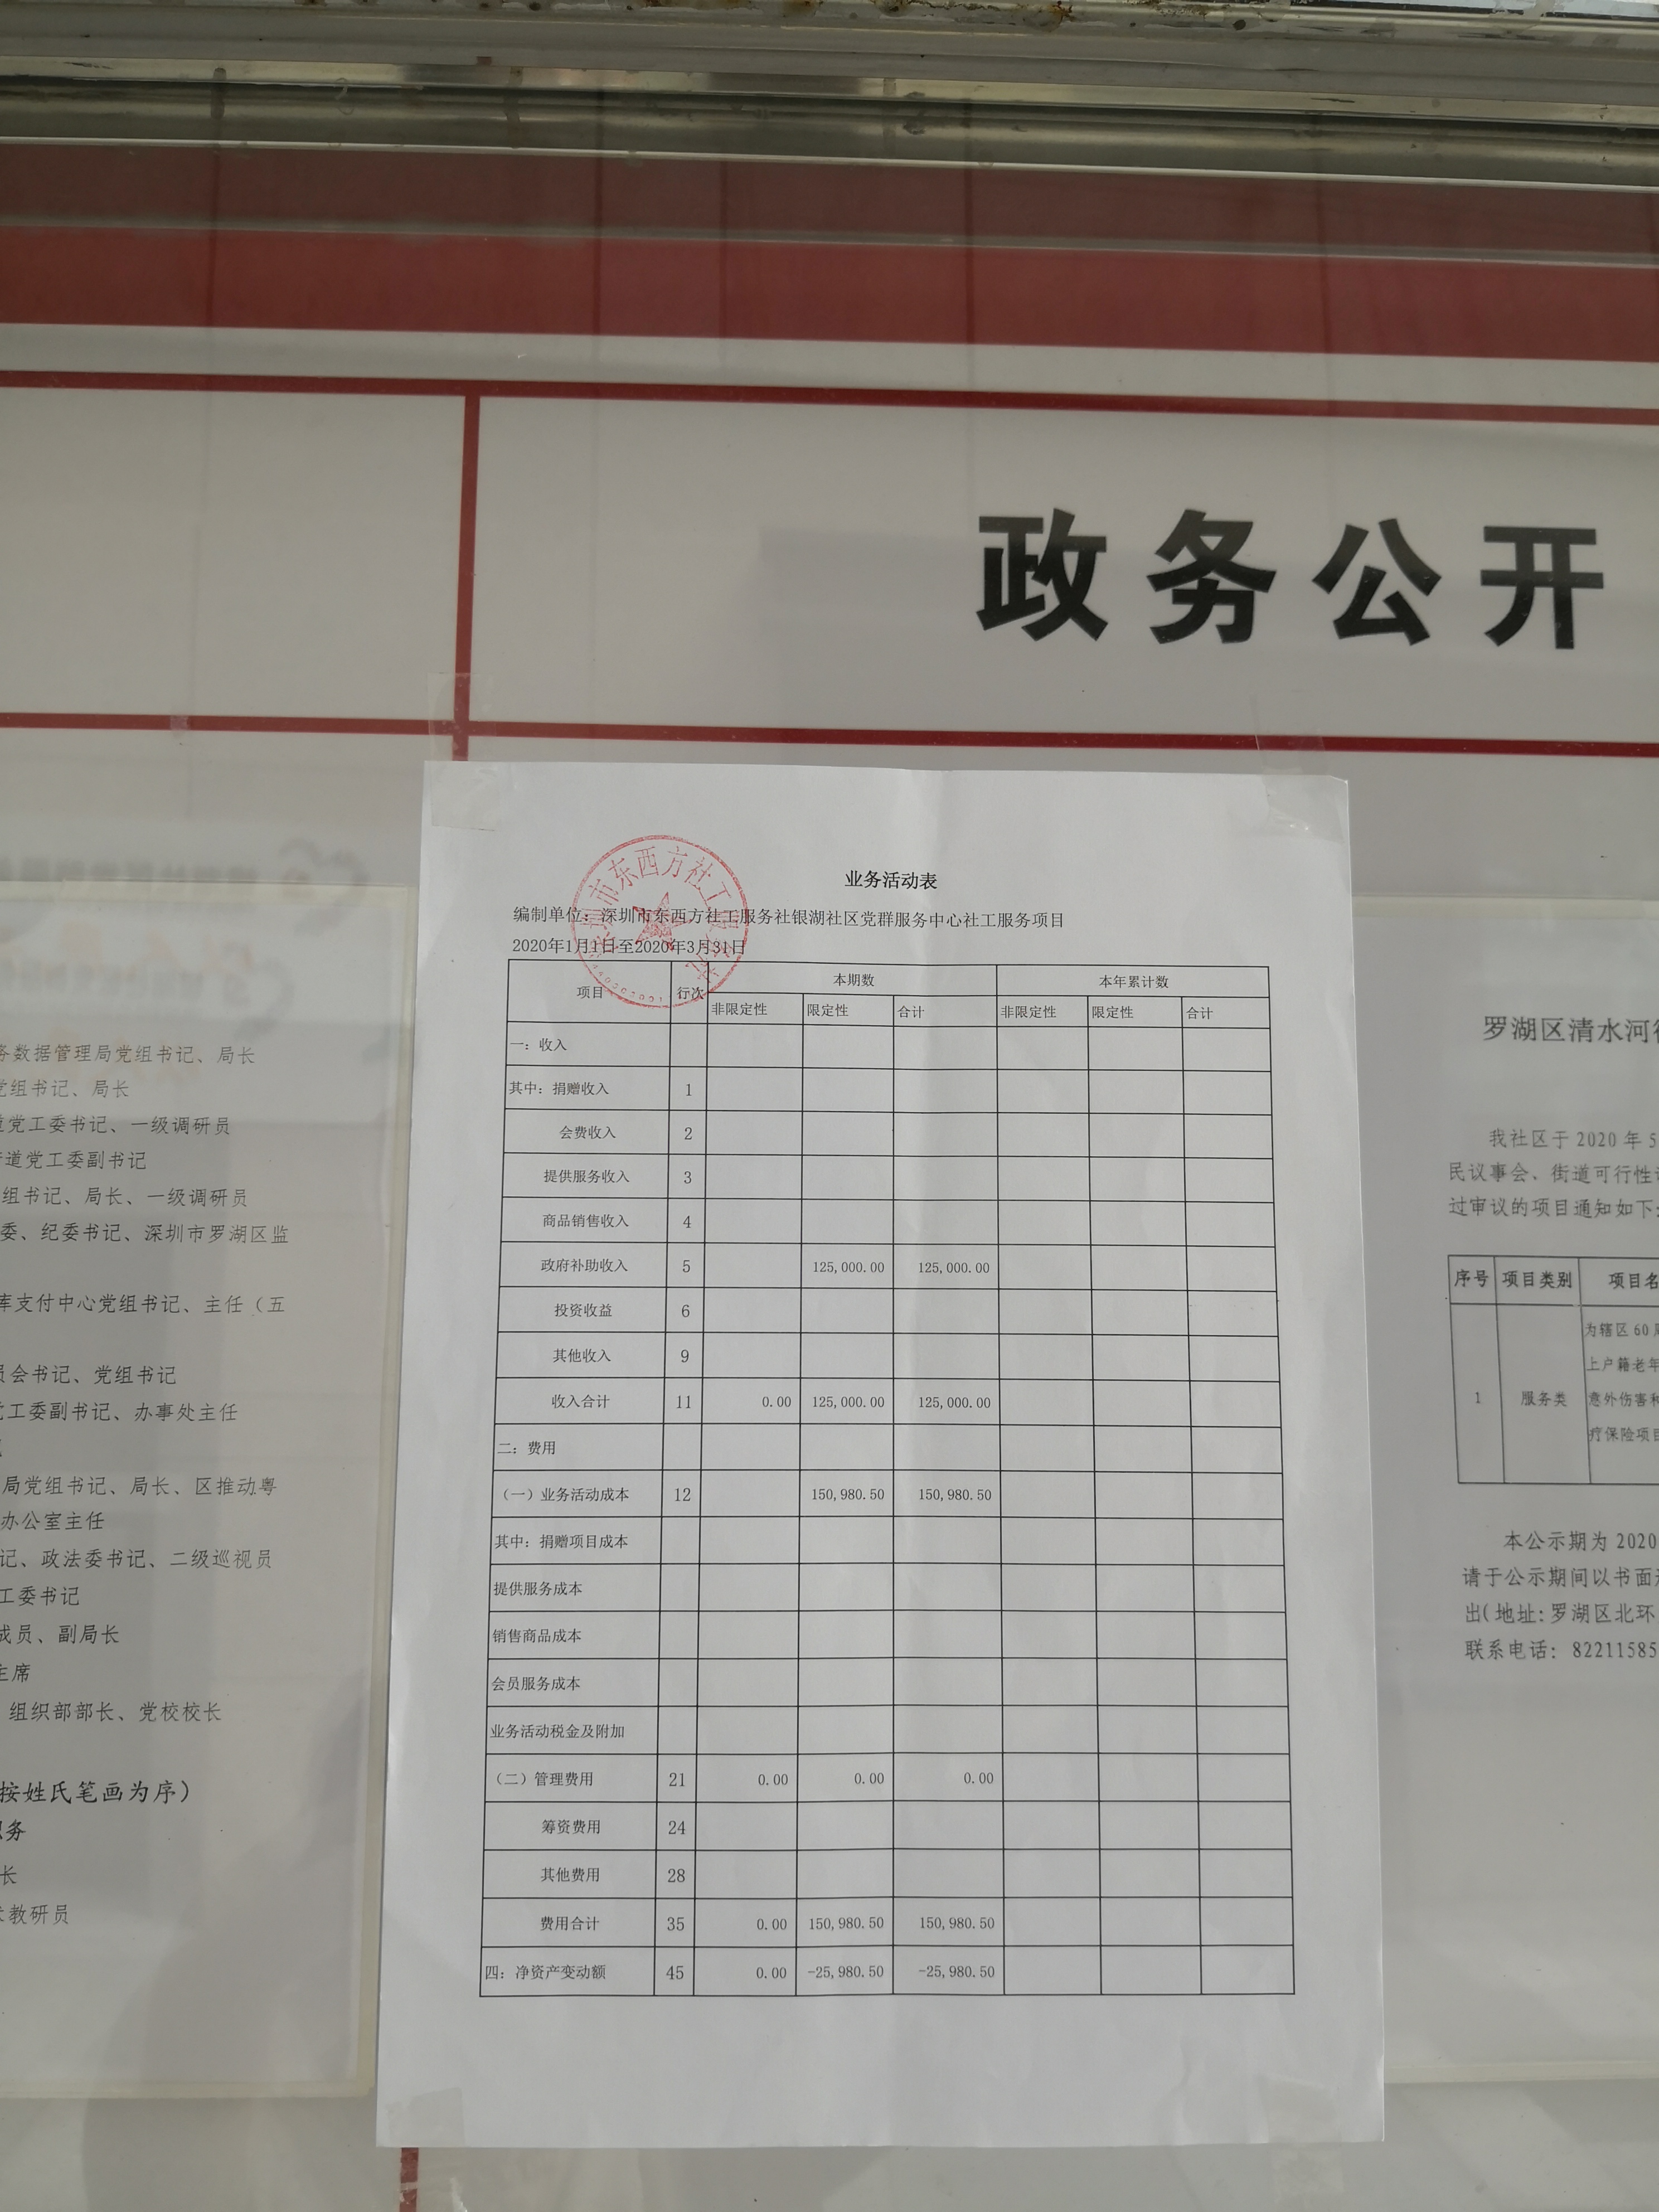 政务公开
业务活动表
编制单位：深圳市东西方社工服务社银湖社区党群服务中心社工服务项目
2020年1月1日至2020年3月31日
项目 行次 本期数 本年累计数
非限定性 限定性 合计 非限定性 限定性 合计
一：收入
其中：捐赠收入 1
会费收入 2
提供服务收入 3
商品销售收入 4
政府补助收入 5 125,000.00 125,000.00
投资收益 6
其他收入 9
收入合计 11 0.00 125,000.00 125,000.00
二：费用
（一）业务活动成本 12 150,980.50 150,980.50
其中：捐赠项目成本
提供服务成本
销售商品成本
会员服务成本
业务活动税金及附加
（二）管理费用 21 0.00 0.00 0.00
筹资费用 24
其他费用 28
费用合计 35 0.00 150,980.50 150,980.50
四：净资产变动额 45 0.00 -25,980.50 -25,980.50
务数据管理局党组书记、局长
党组书记、局长
党工委书记、一级调研员
道党工委副书记
组书记、局长、一级调研员
委、纪委书记、深圳市罗湖区监
库支付中心党组书记、主任（五
员会书记、党组书记
党工委副书记、办事处主任
局党组书记、局长、区推动粤
办公室主任
记、政法委书记、二级巡视员
工委书记
成员、副局长
主席
组织部部长、党校校长
按姓氏笔画为序）
职务
长
教研员
罗湖区清水河
我社区于 2020 年 5
民议事会、街道可行性
过审议的项目通知如下
序号 项目类别 项目名
1 服务类
为辖区 60
上户籍老年
意外伤害和
疗保险项目
本公示期为 2020
请于公示期间以书面
出(地址:罗湖区北环
联系电话: 82211585